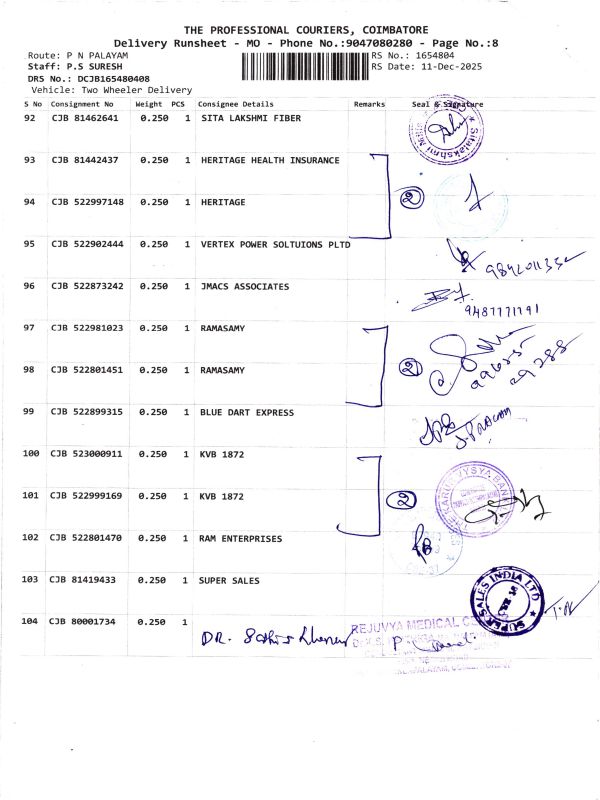 THE PROFESSIONAL COURIERS, COIMBATORE
Delivery Runsheet - MO - Phone No.:9047080280 - Page No.:8
Route: P N PALAYAM RS No.: 1654804
Staff: P.S SURESH RS Date: 11-Dec-2025
DRS No.: DCJB165480408
Vehicle: Two Wheeler Delivery
S No Consignment No Weight PCS Consignee Details Remarks Seal & Signature
92 CJB 81462641 0.250 1 SITA LAKSHMI FIBER
93 CJB 81442437 0.250 1 HERITAGE HEALTH INSURANCE
2
94 CJB 522997148 0.250 1 HERITAGE
95 CJB 522902444 0.250 1 VERTEX POWER SOLTUIONS PLTD
96 CJB 522873242 0.250 1 JMACS ASSOCIATES
97 CJB 522981023 0.250 1 RAMASAMY
2
98 CJB 522801451 0.250 1 RAMASAMY
99 CJB 522899315 0.250 1 BLUE DART EXPRESS
100 CJB 523000911 0.250 1 KVB 1872
2
101 CJB 522999169 0.250 1 KVB 1872
102 CJB 522801470 0.250 1 RAM ENTERPRISES
103 CJB 81419433 0.250 1 SUPER SALES SUPER SALES INDIA LTD
104 CJB 80001734 0.250 1
DR. REJUVYA MEDICAL